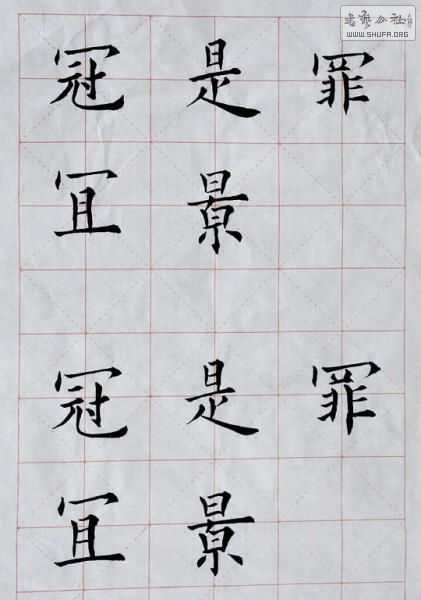 书艺公社
WWW.SHUFA.ORG
冠 是 罪
冝 景
冠 是 罪
冝 景